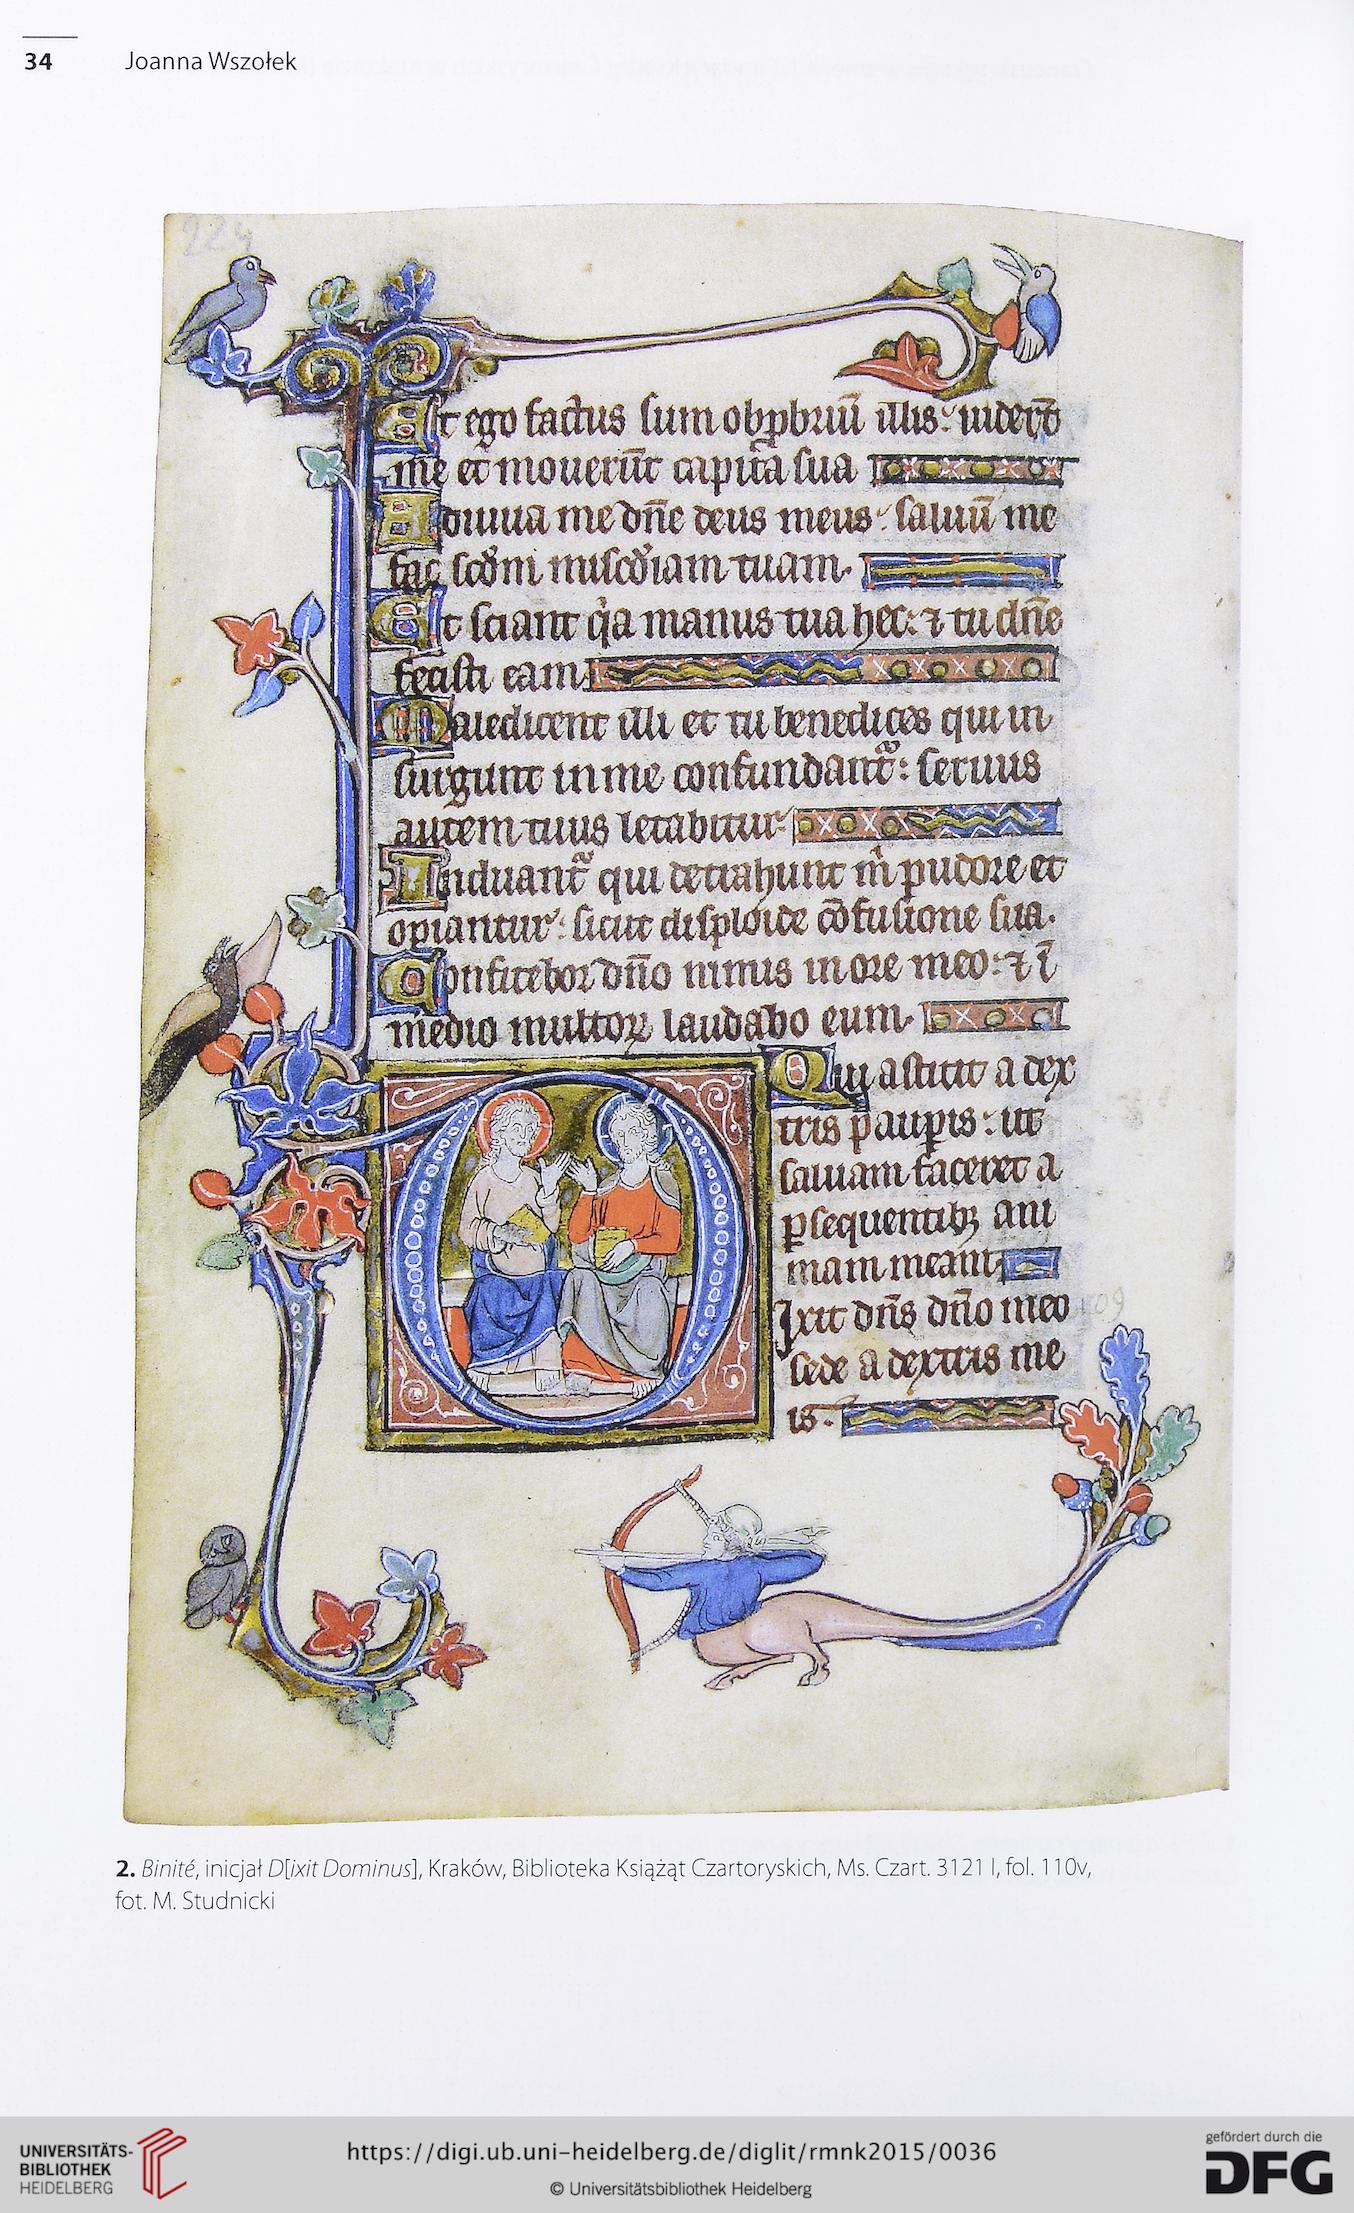 34 Joanna Wszołek
224
Et ego factus sum obꝓbriũ illis: viderũt
me et mouerũt capita sua
Adiuua me dñe deus meus: saluũ me
fac scd̃m misc̃diam tuam.
Et sciant q̃a manus tua hec: ⁊ tu dñe
fecisti eam.
Maledicent illi et tu benedices qui in
surgunt in me confundant᷑: seruus
autem tuus letabitur
Induant᷑ qui detrahunt m̃ pudore et
opiantur: sicut disploide cõfusione sua.
Confitebor dño nimis in ore meo: ⁊ ĩ
medio multoꝝ laudabo eum.
Qui astitit a dex
tris pauꝑis: ut
saluam faceret a
ꝑsequentibꝫ ani
mam meam
Ixit dñs dño meo
109
sede a dextris me
is.
2. Binité, inicjał D[ixit Dominus], Kraków, Biblioteka Książąt Czartoryskich, Ms. Czart. 3121 I, fol. 110v,
fot. M. Studnicki
UNIVERSITÄTS-
BIBLIOTHEK
HEIDELBERG
https://digi.ub.uni-heidelberg.de/diglit/rmnk2015/0036
© Universitätsbibliothek Heidelberg
gefördert durch die
DFG